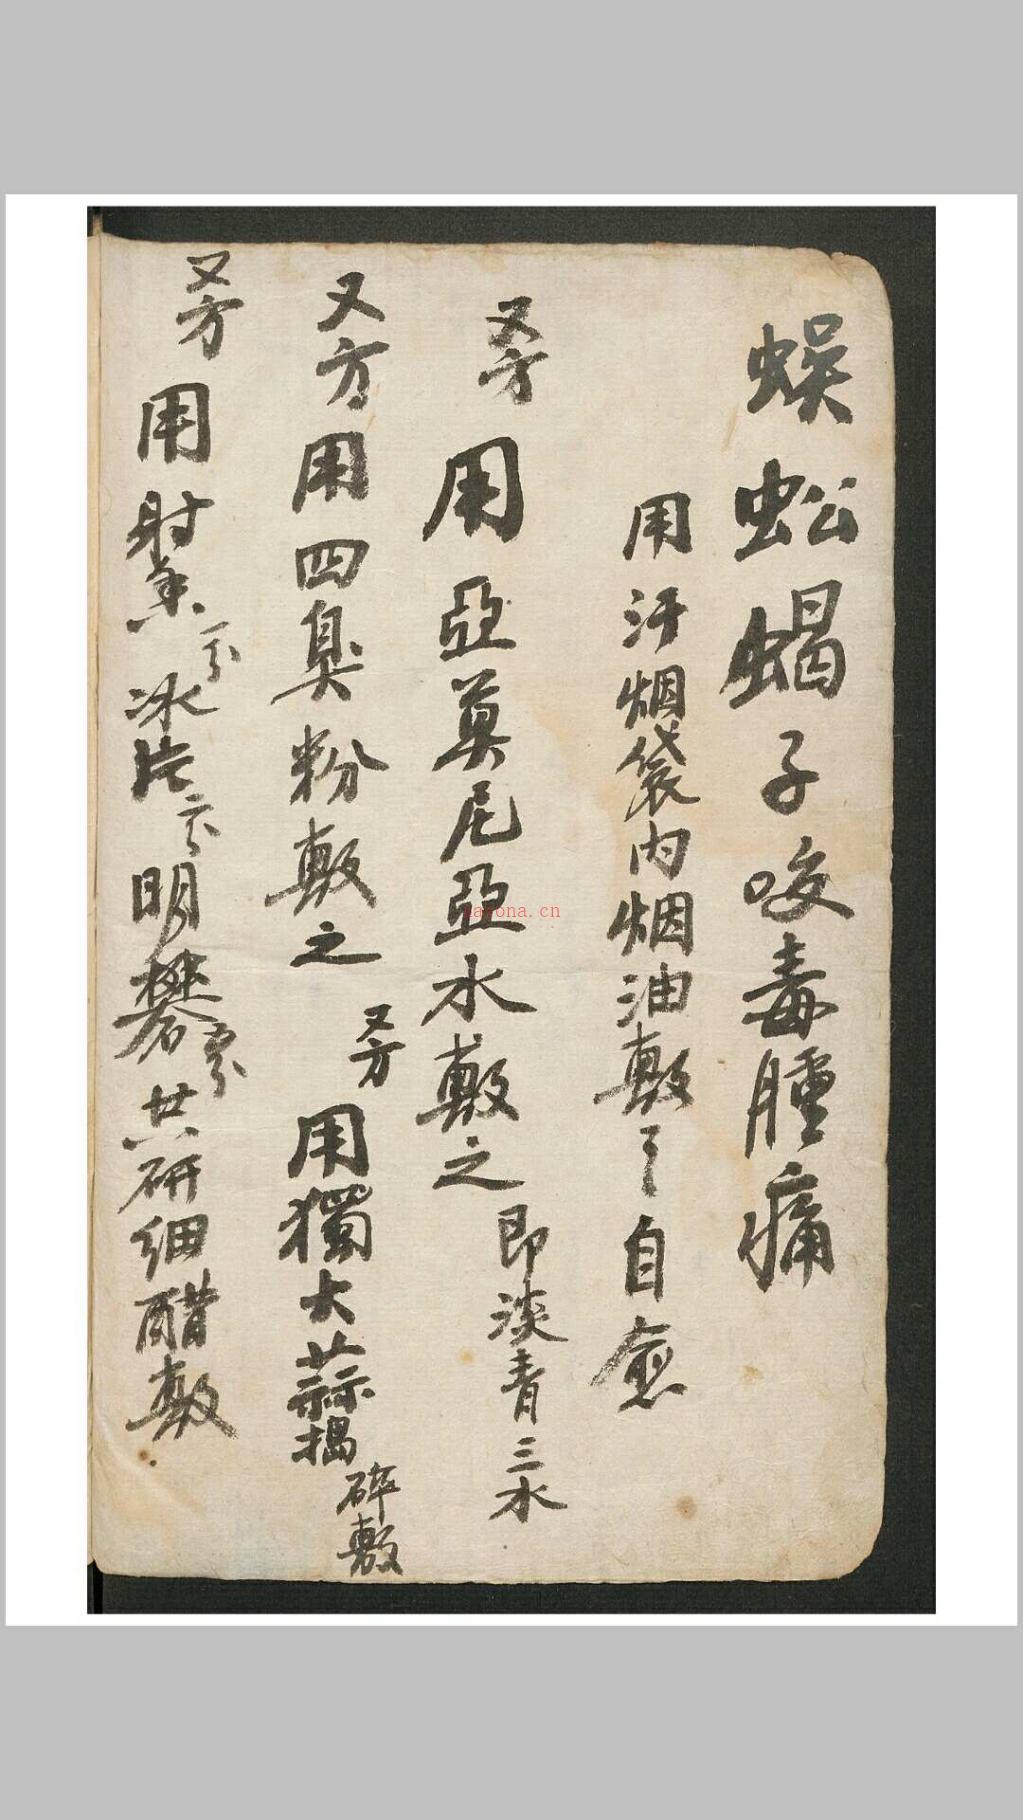 蜈蚣蝎子咬毒腫痛
用汙烟袋内烟油敷之自愈
又方用亞莫尼亞水敷之即淡青三水
又方用四臭粉敷之
又方用獨大蒜搗碎敷
又方用射香一分冰片一分明礬分共研细醋敷